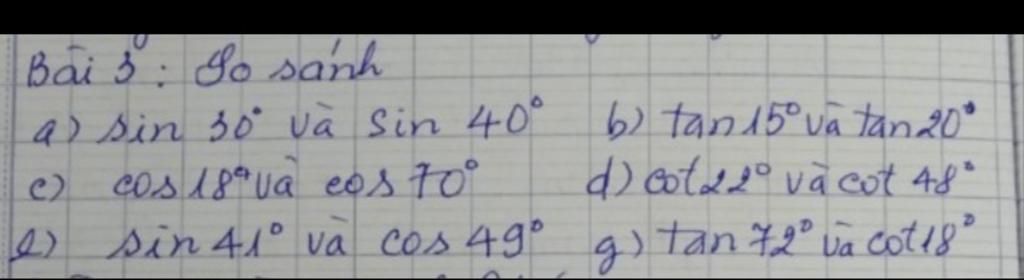 Bài 3: So sánh
a) sin 30° và sin 40° b) tan 15° và tan 20°
c) cos 18° và cos 70° d) cot 22° và cot 48°
e) sin 41° và cos 49° g) tan 72° và cot 18°